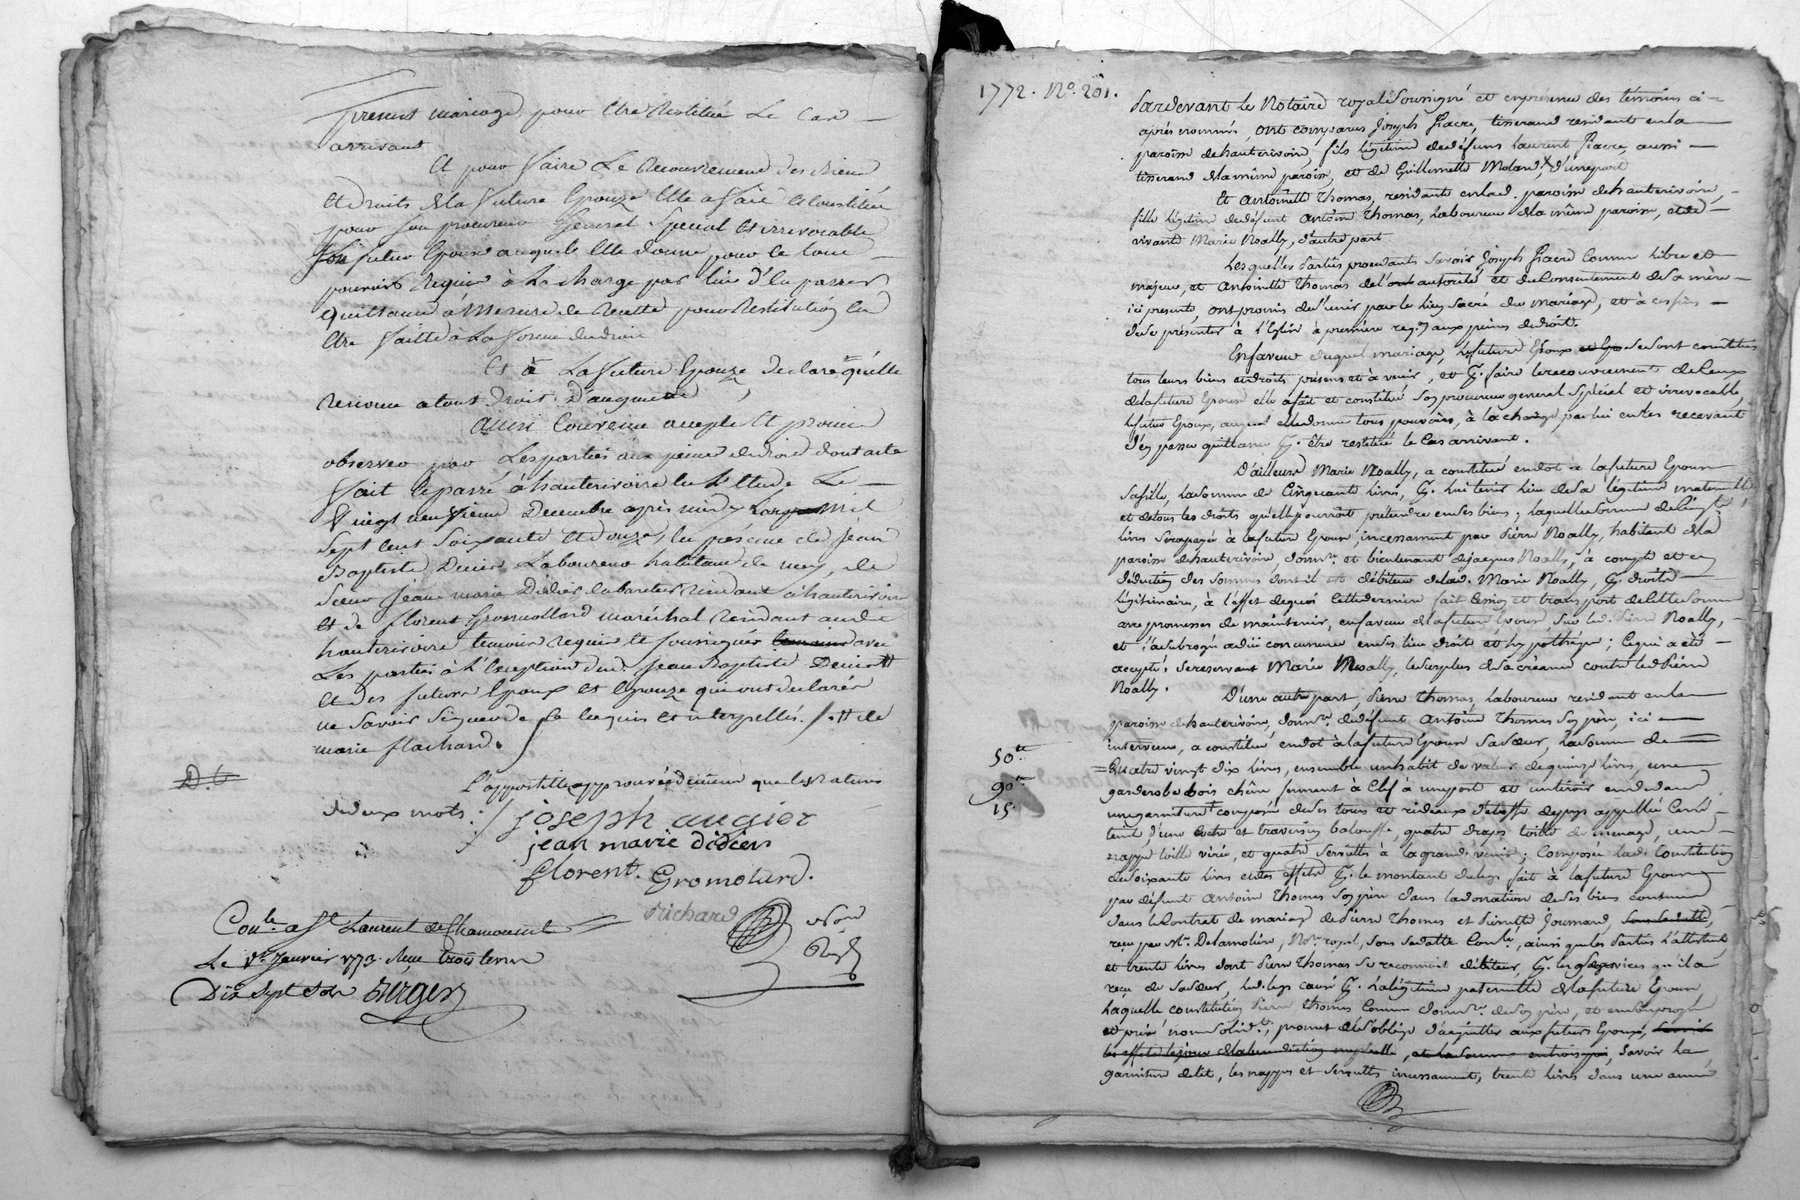 present mariage, pour Etre Restituée Le Cas
arrivant
Et pour faire Le Recouvrement des biens
Et droits de La future Epouze Elle a fait Et Constitué
pour Son procureur General Special Et irrevocable
Son futur Epoux auquel Elle donne, pour ce tous
pouvoirs Requis à La charge par lui d'En passer
quittance à Mesure de Recette pour Restitution En
Etre faitte à La forme du droit
Et à La future Epouze declaré qu'elle
Renonce a tout Droit D'augment
ainsi Convenu accepté Et promis
observer par Les parties aux peines de droit dont acte
fait Et passé à hauterivoire En L'Etude Le
Vingt neuf Decembre après midy Mil
Sept Cent Soixante Et Douze, En présence de Jean
Baptiste Decier Laboureur habitant de mey, de
Sieur Jean marie Didier Cabaretier Residant à hauterivoire
Et de florent Gromollard maréchal Residant audit
hauterivoire temoins Requis Et Soussignés avec
Les parties à L'Exception dud. Jean Baptiste Decier #
Et des futurs Epoux Et Epouze qui ont declaré
ne Savoir Signer de ce Enquis Et interpellés. /. # de
marie flachard.
L'appostille approuvée de même que la Rature
de deux mots. /
D. C.
joseph augier
jean marie didier
florent. Gromolard.
Richard Not.
Roy.
Con.le a St Laurent de Chamousset
Le 1er Janvier 1773. Reçu trois livres
Dix Sept Sols Burger
1772. No. 201.
Pardevant le Notaire royal Soussigné et en présence des témoins ci-
après nommés, ont comparus Joseph Fiacre, tisserand residant en la
paroisse de hauterivoire, fils légitime de défunt Laurent Fiacre, aussi
tisserand de la même paroisse, et de Guillemette Molard, d'une part
Et Antoinette Thomas, residante en lad. paroisse de hauterivoire,
fille légitime de défunt Antoine Thomas, Laboureur de la même paroisse, et de
vivante Marie Noally, d'autre part
Lesquelles Parties procedants Savoir Joseph Fiacre Comme libre et
majeur, et Antoinette Thomas de l'autorité et du Consentement de Sa mère
ici presente, ont promis de S'unir par le lien Sacré du Mariage, et à ces fins
de Se présenter à l'Eglise à premiere req.on aux peines de droit.
En faveur duquel mariage, les futurs Epoux Se Sont constitués
tous leurs biens et droits présens et à venir, et P. faire le recouvrement de Ceux
de la future Epouse elle a fait et constitué Son procureur general Spécial et irrevocable,
le futur Epoux, auquel elle donne tous pouvoirs, à la charge par lui en les recevant
d'en passer quittance P. être restitué le Cas arrivant.
D'ailleurs Marie Noally, a constitué en dot à la future Epouse
Sa fille, La Somme de Cinquante livres, P. lui tenir lieu de Sa légitime maternelle
et de tous les droits qu'elle pourroit prétendre en Ses biens; laquelle Somme de Cinq.te
livres Sera payée à la future Epouse incessamment par Pierre Noally, habitant de la
paroisse de hauterivoire, donn.re et bientenant de Jacques Noally, à compte et en
déduction des Sommes dont il est débiteur de lad. Marie Noally, P. droits
légitimaires, à l'effet de quoi Cette derniere fait Cession et transport de lette Somme
avec promesses de maintenir, en faveur de la future Epouse Sur led. Pierre Noally,
et l'a Subrogée à due concurrence en Ses lieu droits et hypothéque; Ce qui a été
accepté. Se reservant Marie Noally, le Surplus de Sa créance contre led. Pierre
Noally.
D'une autre part, Pierre Thomas, Laboureur residant en la
paroisse de hauterivoire, donn.re de défunt Antoine Thomas Son père, ici
intervenu, a constitué en dot à la future Epouse Sa Soeur, La Somme de
Quatre vingt dix livres, ensemble un habit de valeur de quinze livres, une
garderobe bois chêne fermant à Clef à une porte et un tiroir en dedans
une garniture composée de Ses tours et rideaux d'étoffe du pays appellée Cord
teint, d'une Coitre et traversin balouffe, quatre draps toille de menage, une
nappe toille virée, et quatre Serviettes à la grande venise; Composée lad. Constitution
de Soixante livres et des effets P. le montant du legs fait à la future Epouse
par défunt Antoine Thomas Son père dans la donation de Ses biens contenue
dans le Contrat de mariage de Pierre Thomas et Pierrette Journoud,
reçu par Me. Delamolière, No.re royal, Sous Sa datte Con.le, ainsi que les Parties l'attestent,
et trente livres dont Pierre Thomas Se reconnoit débiteur, P. les Services qu'il a
reçu de Sa Soeur, led. legs causé P. la légitime paternelle de la future Epouse
Laquelle constitution Pierre Thomas Comme donn.re de Son père, et en Son propre
et privé nom Solid.t, promet et S'oblige d'acquitter aux futurs Epoux,
les effets le jour de la bénédiction nuptiale, et la Somme Savoir la
garniture de lit, les nappes et Serviettes incessament, trente livres dans une année
50.tt
90.tt
15